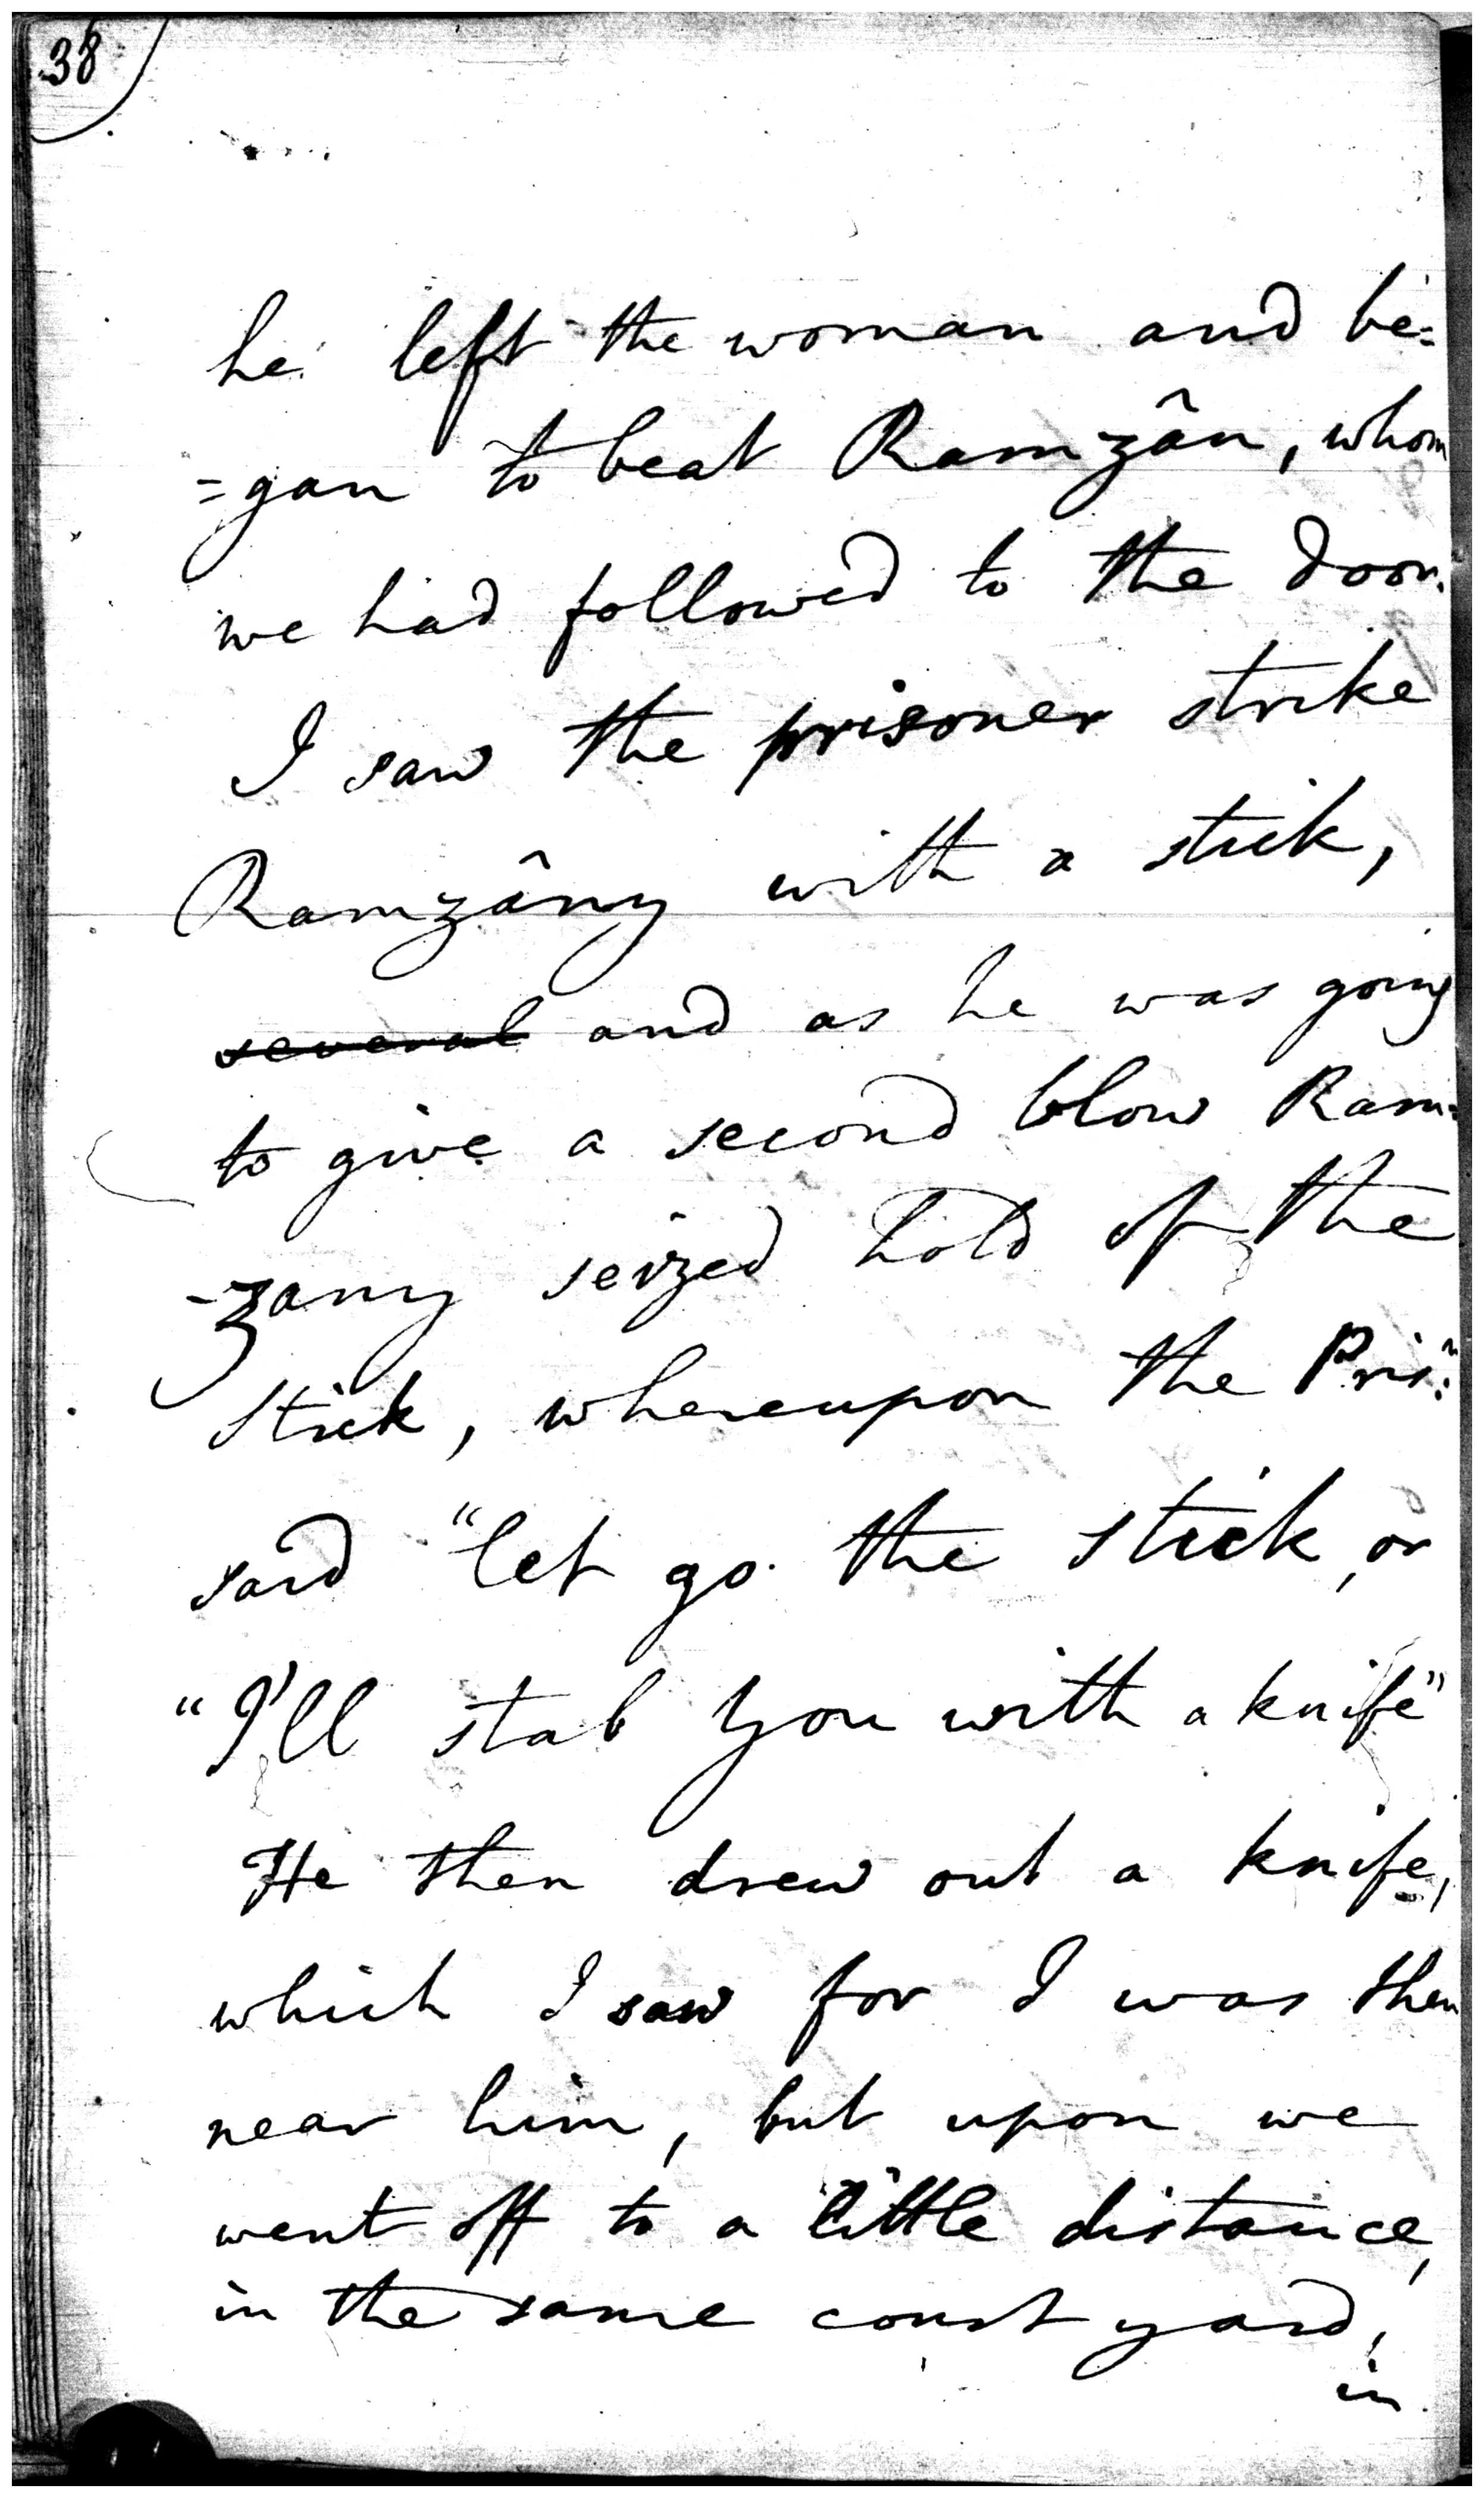 38
he left the woman and be=
=gan to beat Ramzân, whom
we had followed to the door.
I saw the prisoner strike
Ramzâny with a stick,
several and as he was going
to give a second blow Ram=
-zany seized hold of the
stick, whereupon the Pris.n
said "let go the stick, or
"I'll stab you with a knife"
He then drew out a knife,
which I saw for I was then
near him, but upon we
went off to a little distance,
in the same court yard,
in